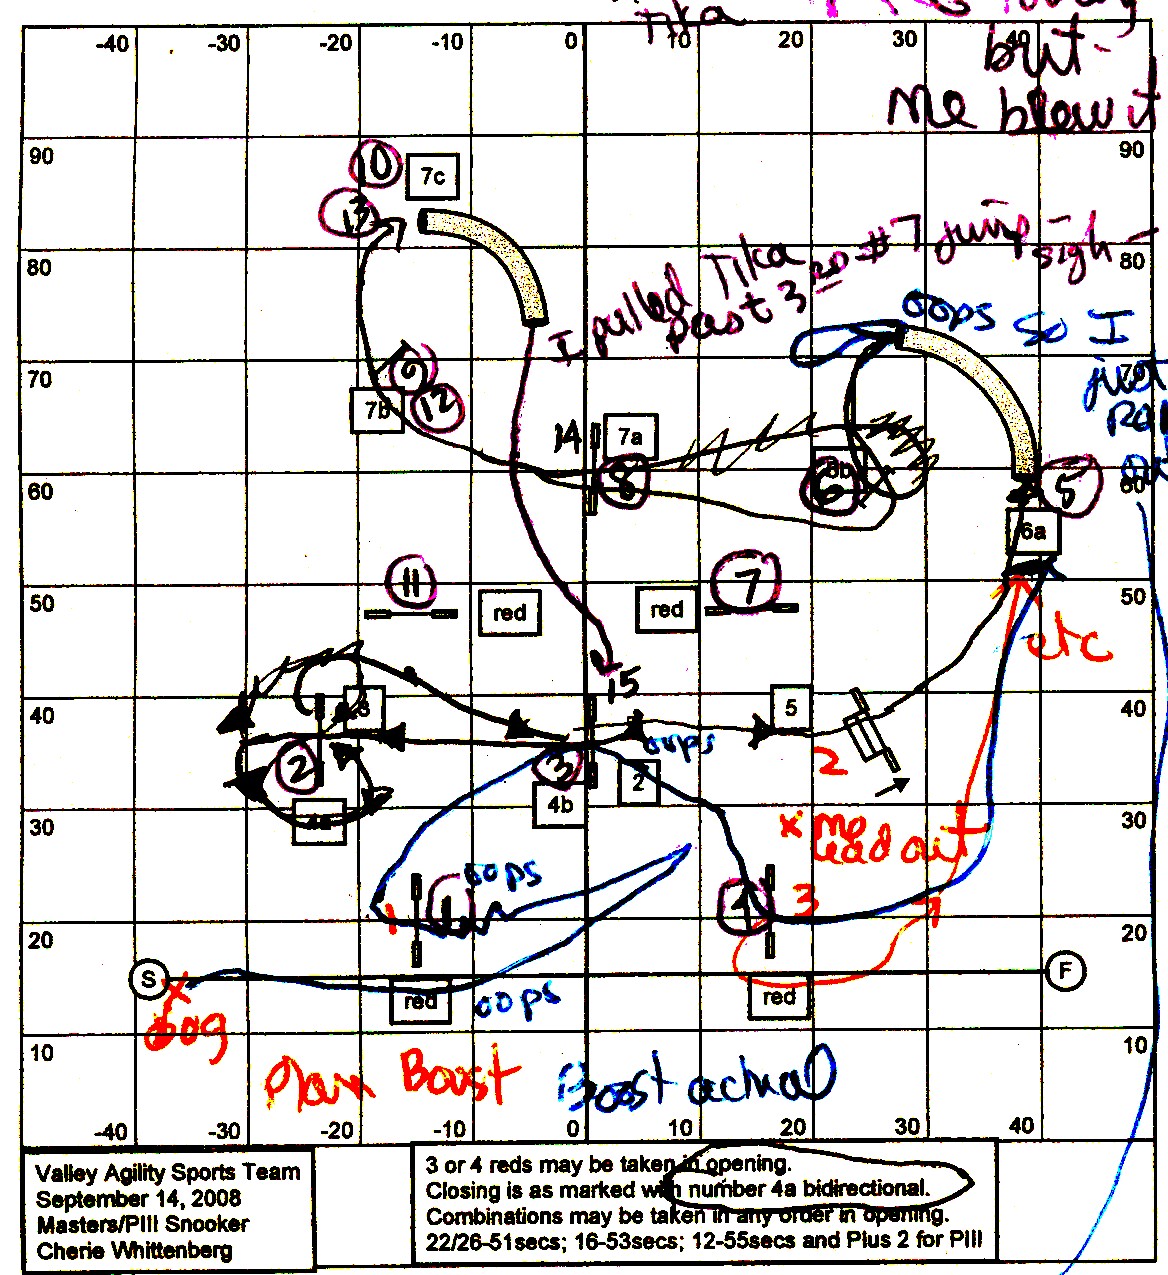 Tika
but-
me blew it
-40 -30 -20 -10 0 10 20 30 40
90 90
10 7c
13
80 80
I pulled Tika
past 3RD #7 jump -
sigh -
oops so I
just
ran
70 70
9
7b 12
14 7a
60 60
8 6b 6 5
6a
11 7
50 50
red red
etc
15
40 40
3 5
oops
2 3 2 2
4b
4a
30 30
x me
lead out
oops
1 1 4 3
20 20
S F
x red oops red
dog
10 10
Plan Boost Boost actual
-40 -30 -20 -10 0 10 20 30 40
Valley Agility Sports Team
September 14, 2008
Masters/PIII Snooker
Cherie Whittenberg
3 or 4 reds may be taken in opening.
Closing is as marked with number 4a bidirectional.
Combinations may be taken in any order in opening.
22/26-51secs; 16-53secs; 12-55secs and Plus 2 for PIII